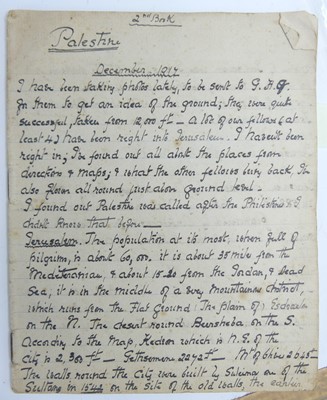 2nd Book
Palestine
December 1917
I have been taking photos lately, to be sent to G.H.Q.
for them to get an idea of the ground; they were quite
successful, taken from 12,000 ft — A lot of our fellows (at
least 4) have been right into Jerusalem. I haven't been
right in; I've found out all about the places from
directors & maps; & what the other fellows bring back. I've
also flown all round just above ground level —
I found out Palestine was called after the Philistines I
didn't know that before —
Jerusalem. The population at its most, when full of
pilgrims, is about 60,000, it is about 35 miles from the
Mediteranian, & about 15-20 from the Jordan, & Dead
Sea, it is in the middle of a very mountainous district,
which runs from the Flat Ground. The plain of Esdraela
on the N. The desert round Beersheba on the S.
According to the map, Kedron which is N.E. of the
City is 2,363 ft — Gethsemene 2242 ft Mt of Olives 2045 —
The walls round the City were built by Suleima one of the
Sultans in 1542 on the site of the old walls, the earlier